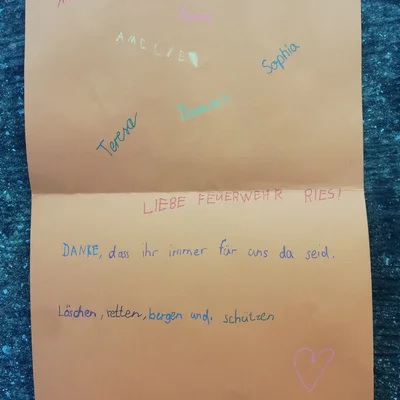 AMELIE
Sophia
Teresa
LIEBE FEUERWEHR RIES!
DANKE, dass ihr immer für uns da seid.
Löschen, retten, bergen und schützen